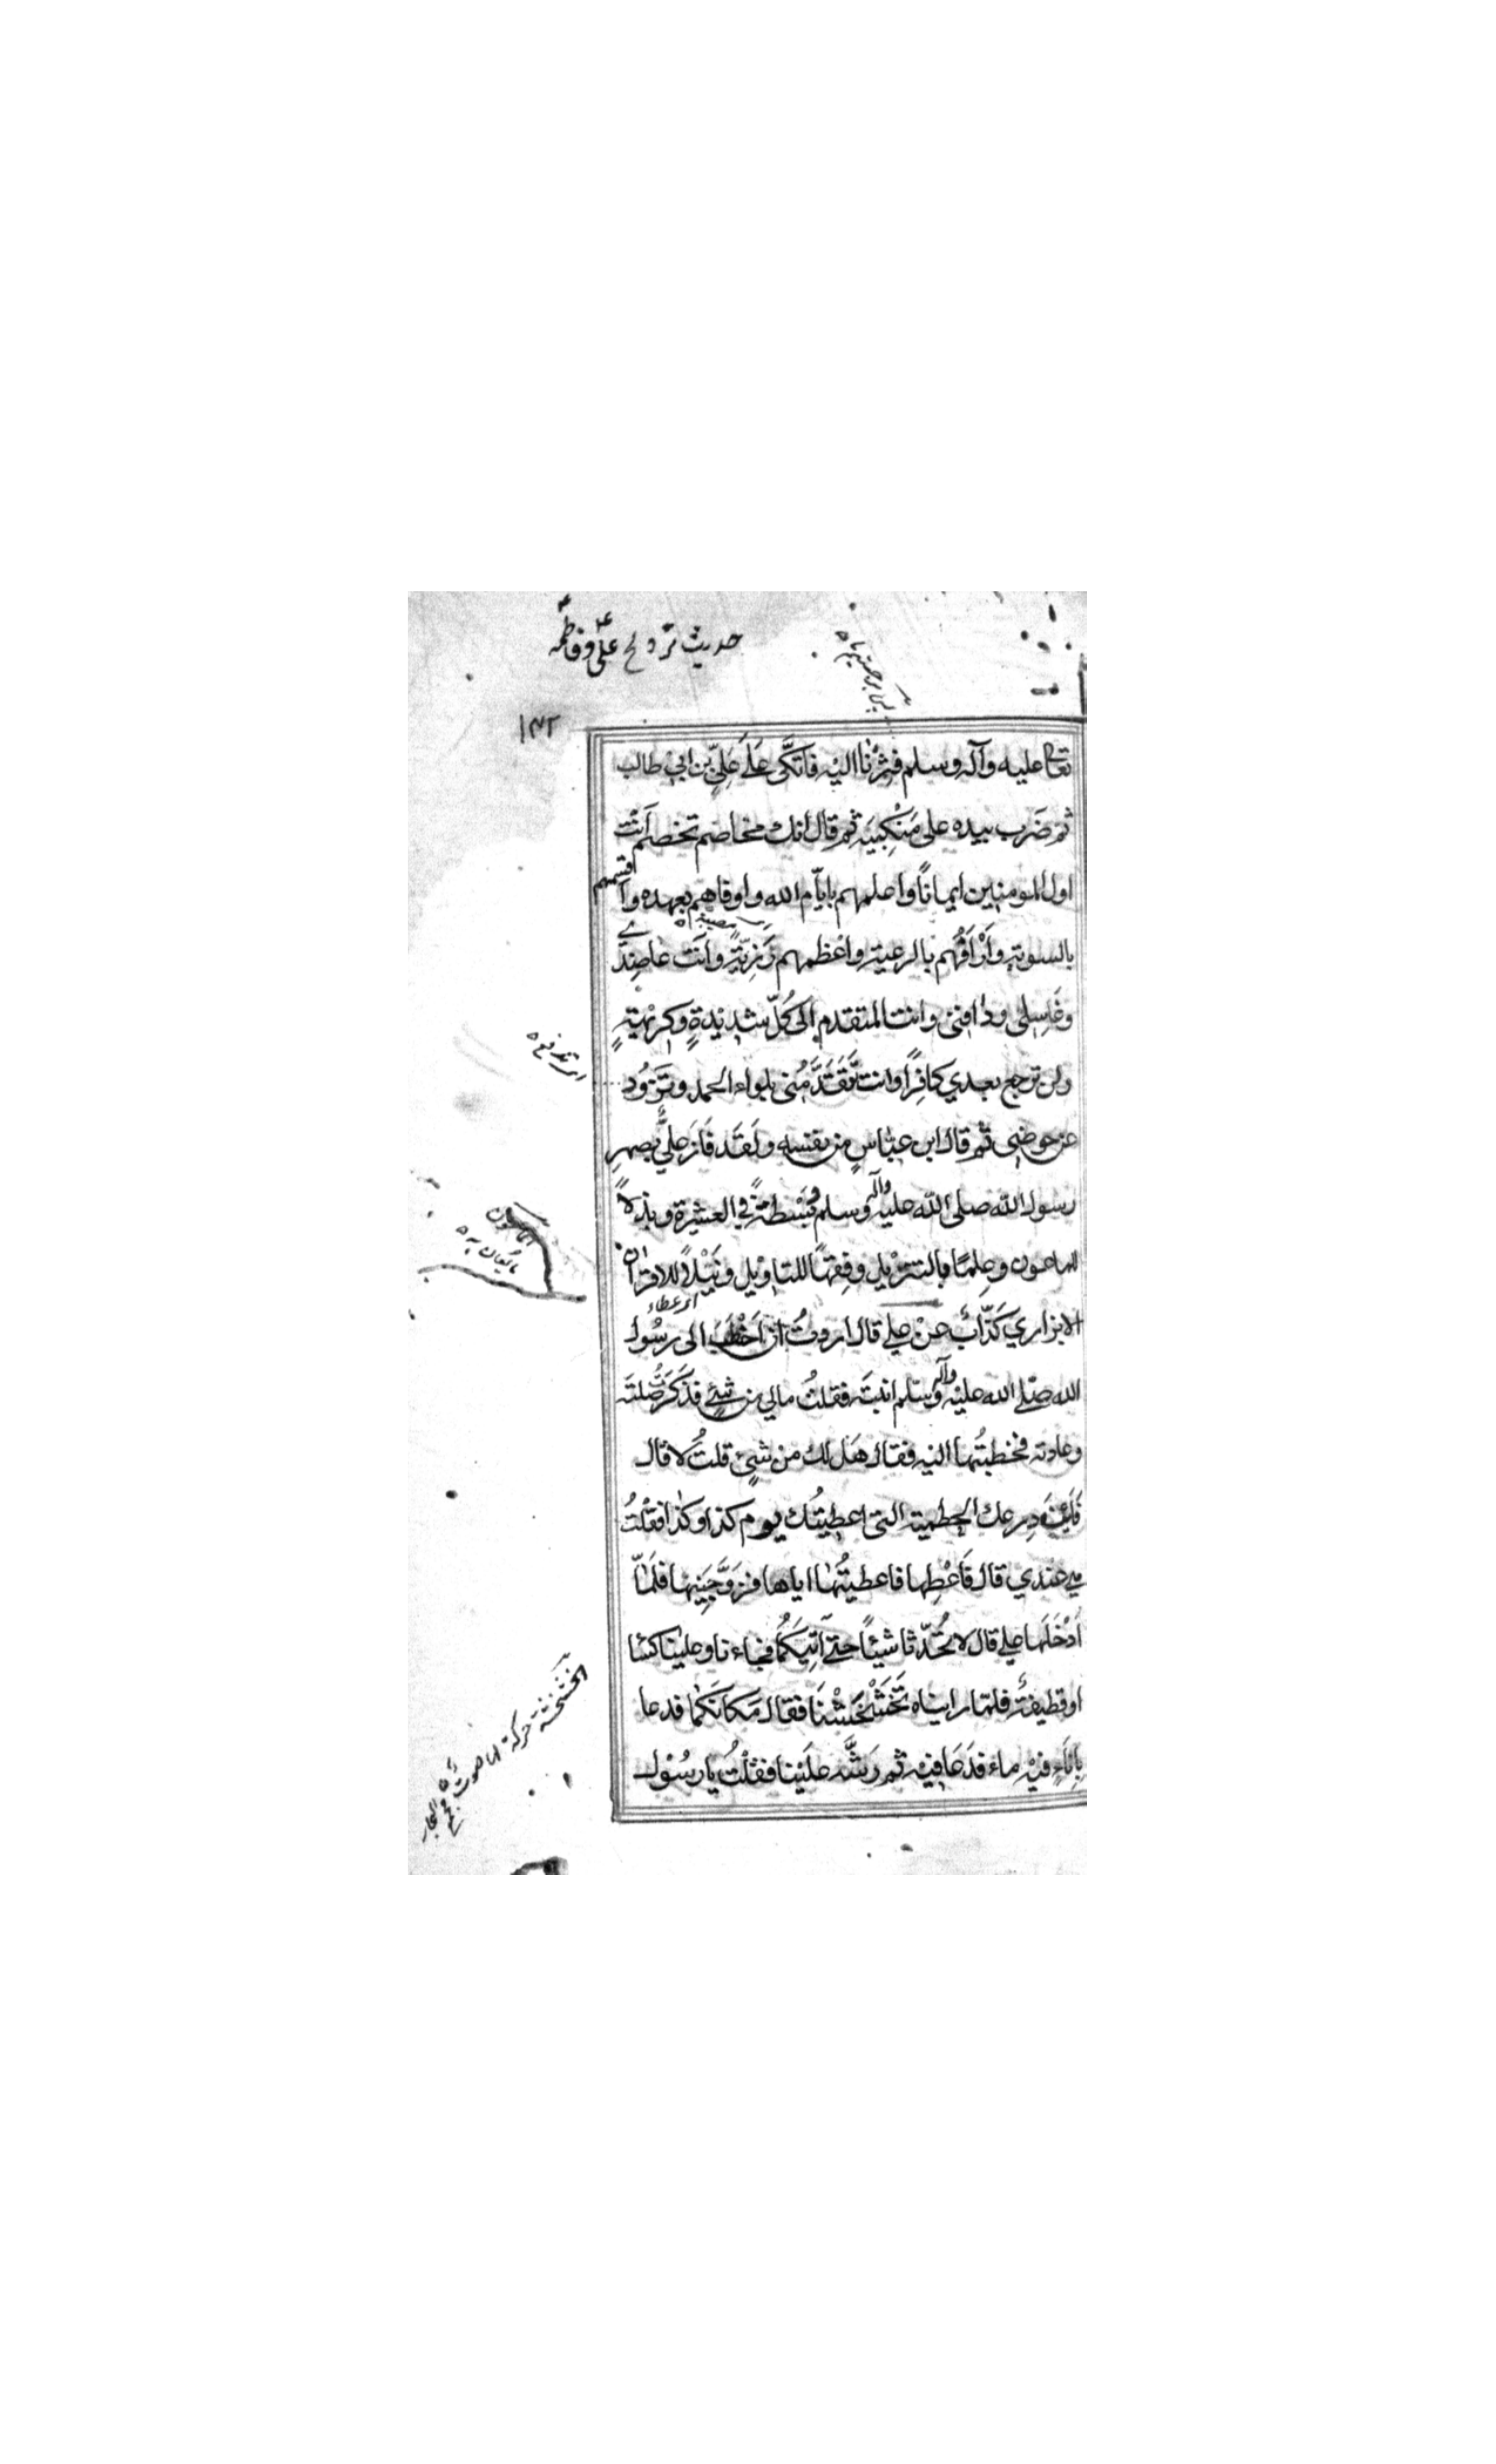 حديث تزويج علي وفاطمة
١٤٢
تعالى عليه وآله وسلم فثرنا اليه فاتكى على علي بن ابي طالب
ثم ضرب بيده على منكبيه ثم قال انك مخاصم تخصم انت
اول المومنين ايمانًا واعلمهم بايّام الله واوفاهم بعهده واقسمهم
بالسوية وَارْأفُهم بالرعية واعظمهم رَزِيَّةً وانت عاضدي
وغَاسِلى ودافنى وانت المتقدم الى كُلّ شديدةٍ وكريهةٍ
ولن ترجع بعدي كافرًا وانت تَتَقَدَّمُنى بلواء الحمد وتَذُود
عن حوضى ثم قال ابن عباسٍ من نفسه ولقَد فَازَ عليٌّ بصهرِ
رسول الله صلى الله عليه وآله وسلم وبَسْطةً في العشيرة وبذلًا
للماعون وعِلمًا بالتنزيل وفِقهًا للتاويل ونَيْلًا للاقران
الابزاري كَذّابٌ عن علي قال اردتُ ان اخْطُبَ الى رسُول
الله صلى الله عليه وآله وسلم ابنتَه فقلتُ مالي من شئٍ فذكَرتُ صِلتَه
وعادته فخطبتُها اليه فقال هَل لك من شئٍ قلتُ لا قال
فَاَيْنَ دِرعك الحطمية التى اعطيتُك يوم كذا وكذا فقلْتُ
هي عندي قال فَاَعْطِها فاعطيتُها اياها فزوَّجَنِيها فلمّا
اَدْخَلَها علي قال لا تُحدّثا شيئًا حتى آتِيَكُما فجاءنا وعلينا كسا
او قطيفة فلما رايناه تَخَشْخَشْنَا فقال مَكانَكُما فدعا
بِاِنَاءٍ فيْه ماء فدَعَا فيه ثم رَشَّه علَيْنا فقلْتُ يا رسُول
اى عطاء
الماعون
الخشخشة حركة لها صوت